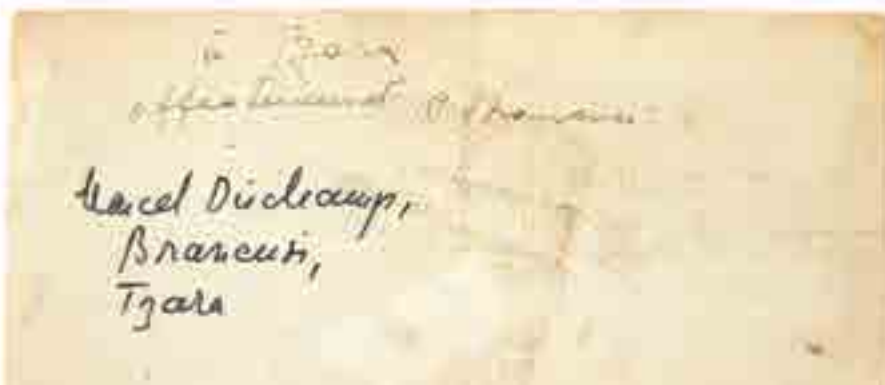 à Tzara
affectueusement
Marcel Duchamp,
Brancusi,
Tzara